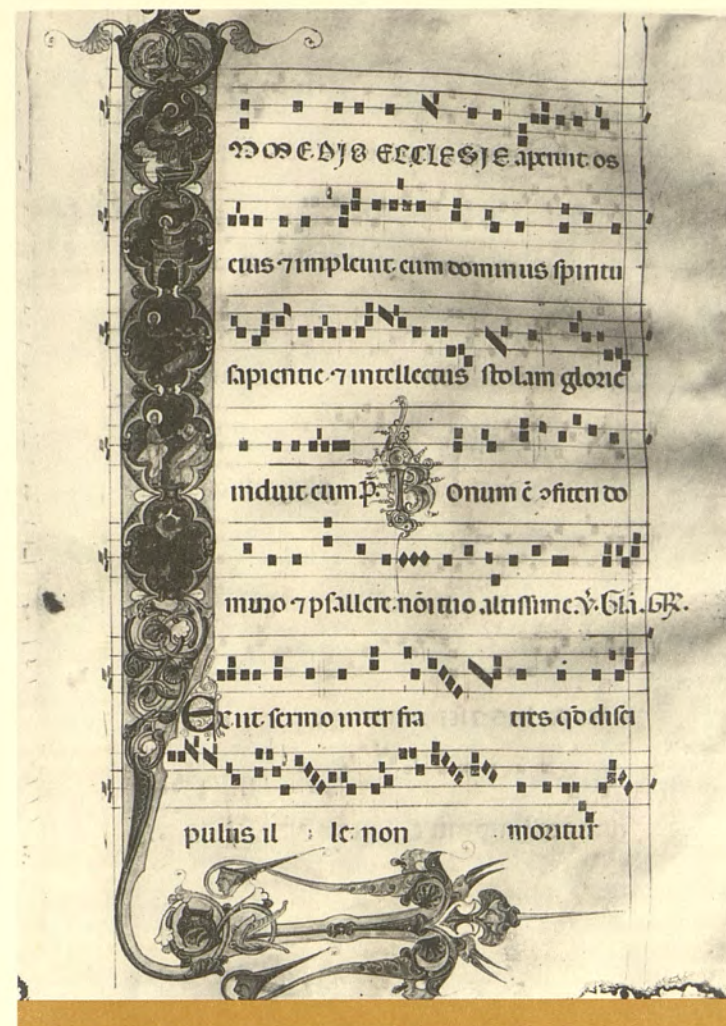 N MEDIO ECCLESIE aperuit os
eius ⁊ impleuit eum dominus spiritu
sapientie ⁊ intellectus stolam glorie
induit eum. p̄. Bonum ē ɔfiteri do
mino ⁊ psallere nōi tuo altissime. V̇. Gl̄a. GR̄.
Exiit sermo inter fra tres qd̄ disci
pulus il le non moritur